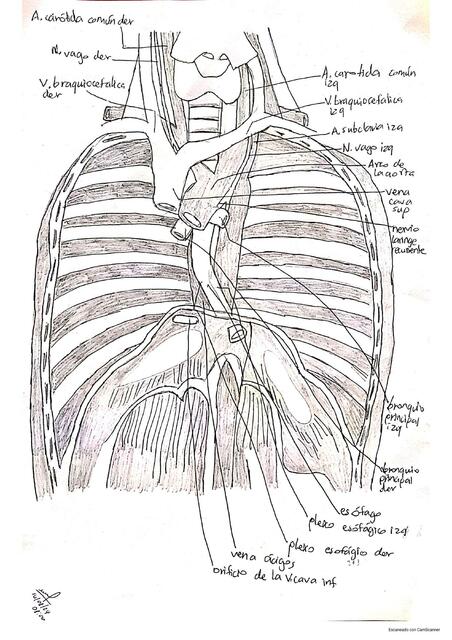 A. carótida común der
N. vago der
V. braquiocefalica
der
A. carotida común
izq
V. braquiocefalica
izq
A. subclavia izq
N. vago izq
Arco de
la aorta
vena
cava
sup
nervio
laringe
recurrente
bronquio
principal
izq
bronquio
principal
der
esófago
plexo esofágico izq
plexo esofágio der
vena ácigos
orificio de la V.cava inf
Escaneado con CamScanner